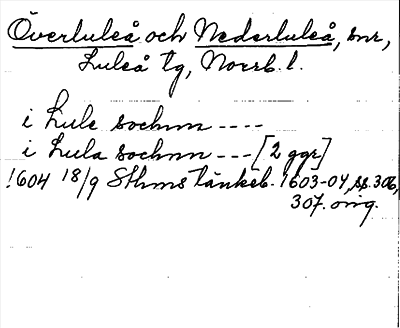 Överluleå och Nederluleå, snr,
Luleå tg, Norrb. l.
i Lule sochnn ----
i Lula sochnn --- [2 ggr]
1604 18/9 Sthms tänkeb. 1603-04, ss. 306,
307. orig.